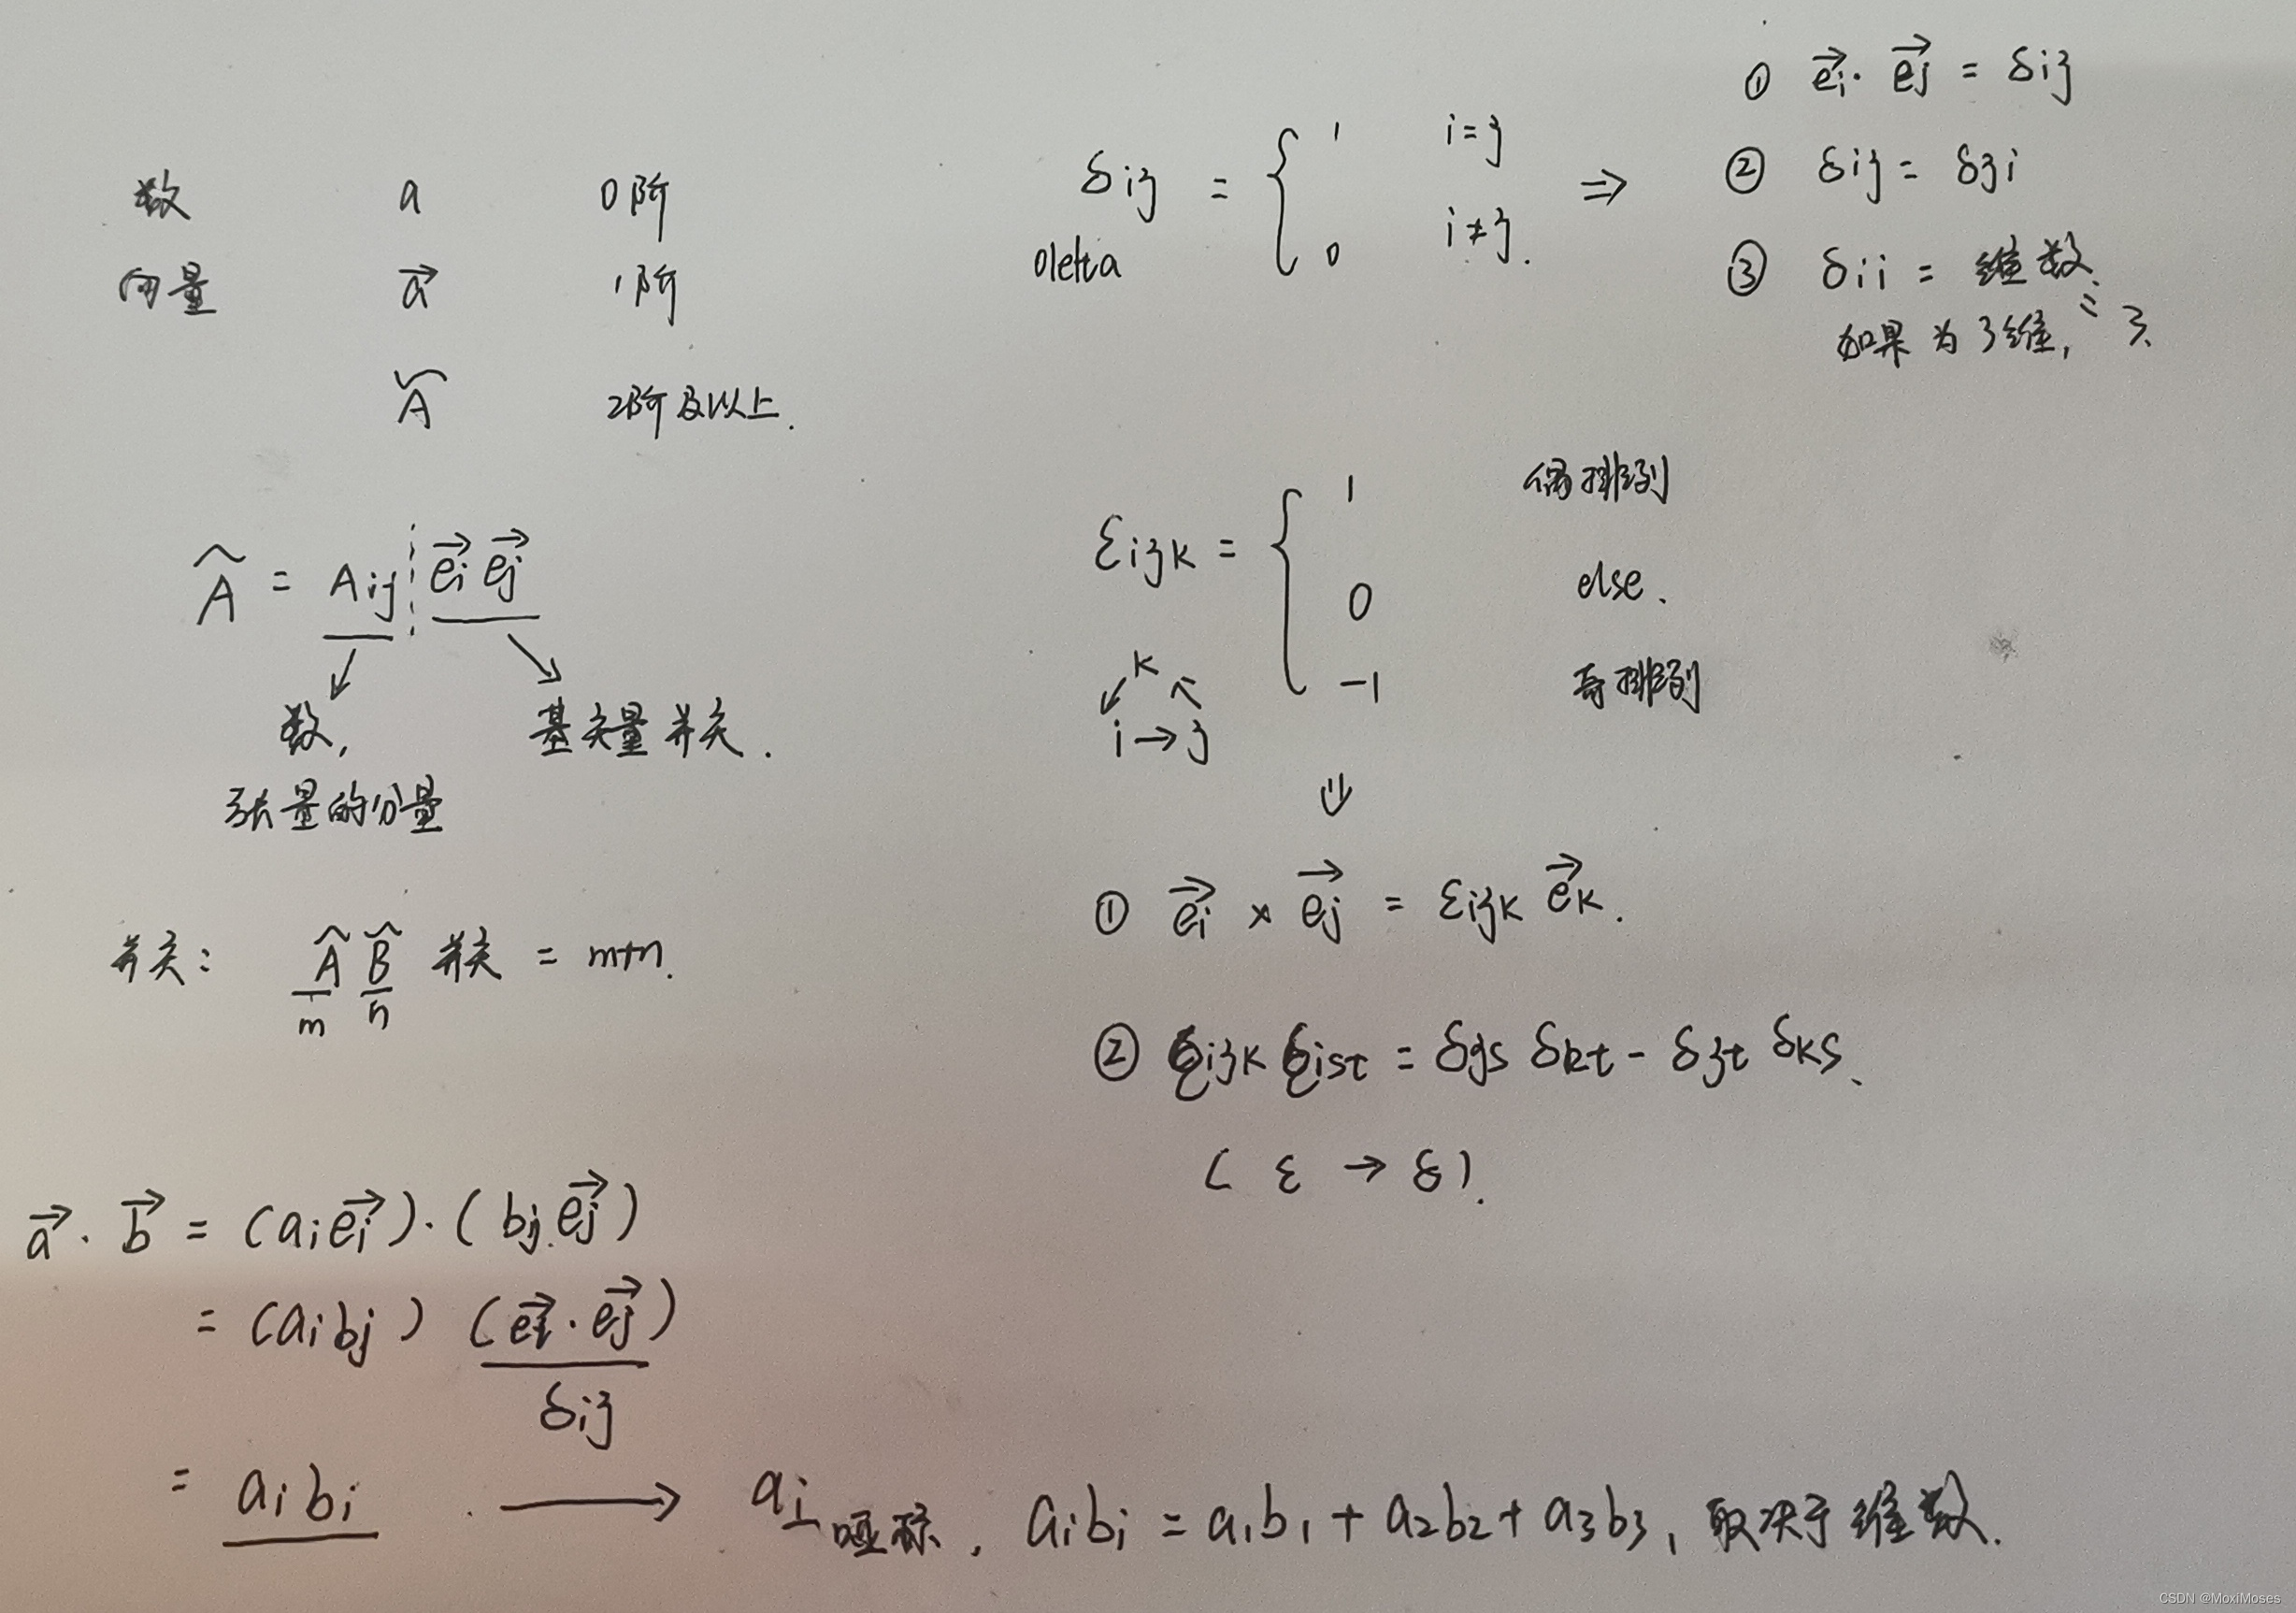 数 a 0阶
向量 a⃗ 1阶
Ã 2阶及以上.
Ã = Aij e⃗i e⃗j
数,
张量的分量
基矢量并矢.
并矢: Ã B̃ 并矢 = m+n.
m n
a⃗ · b⃗ = (ai e⃗i) · (bj e⃗j)
= (ai bj) (e⃗i · e⃗j)
δij
= ai bi → ai 哑标, aibi = a1b1 + a2b2 + a3b3, 取决于维数.
δij = { 1 i=j
0 i≠j.
delta
⇒
① e⃗i · e⃗j = δij
② δij = δji
③ δii = 维数
如果为3维, = 3.
εijk = { 1 偶排列
0 else.
-1 奇排列
k
i → j
⇓
① e⃗i × e⃗j = εijk e⃗k.
② εijk εist = δjs δkt - δjt δks.
( ε → δ ).
CSDN @MoxiMoses